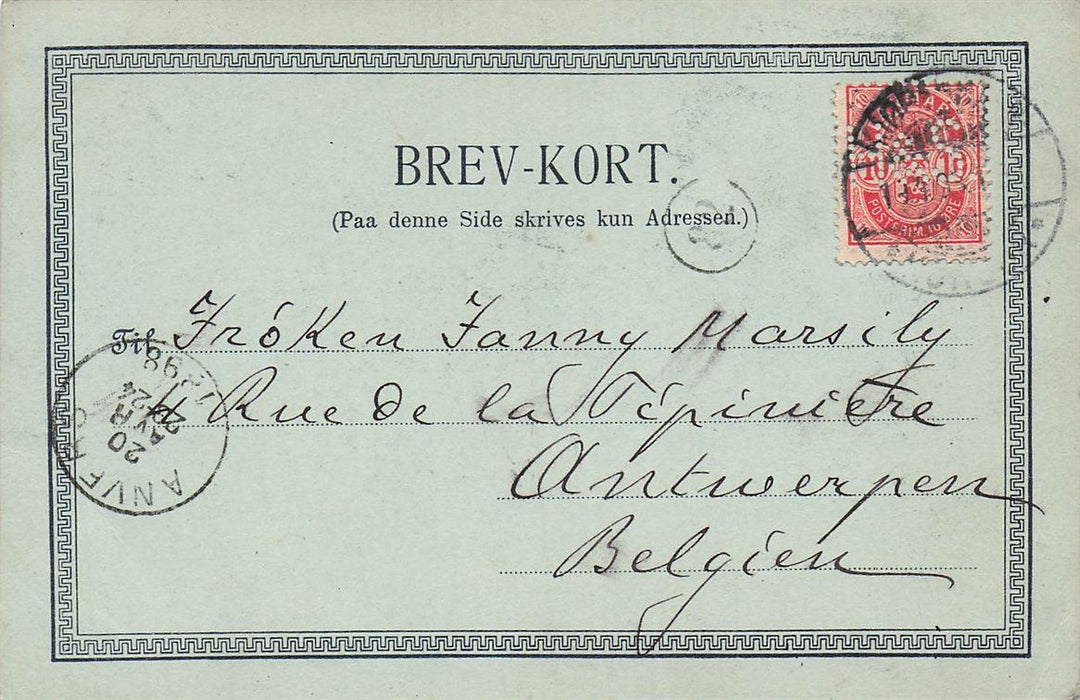 BREV-KORT.
(Paa denne Side skrives kun Adressen.)
10 10
POSTFRIM. 10 ØRE
Til Fröken Fanny Marsily
4 Rue de la Pépinière
Antwerpen
Belgien
ANVERS
20
AVR
1898